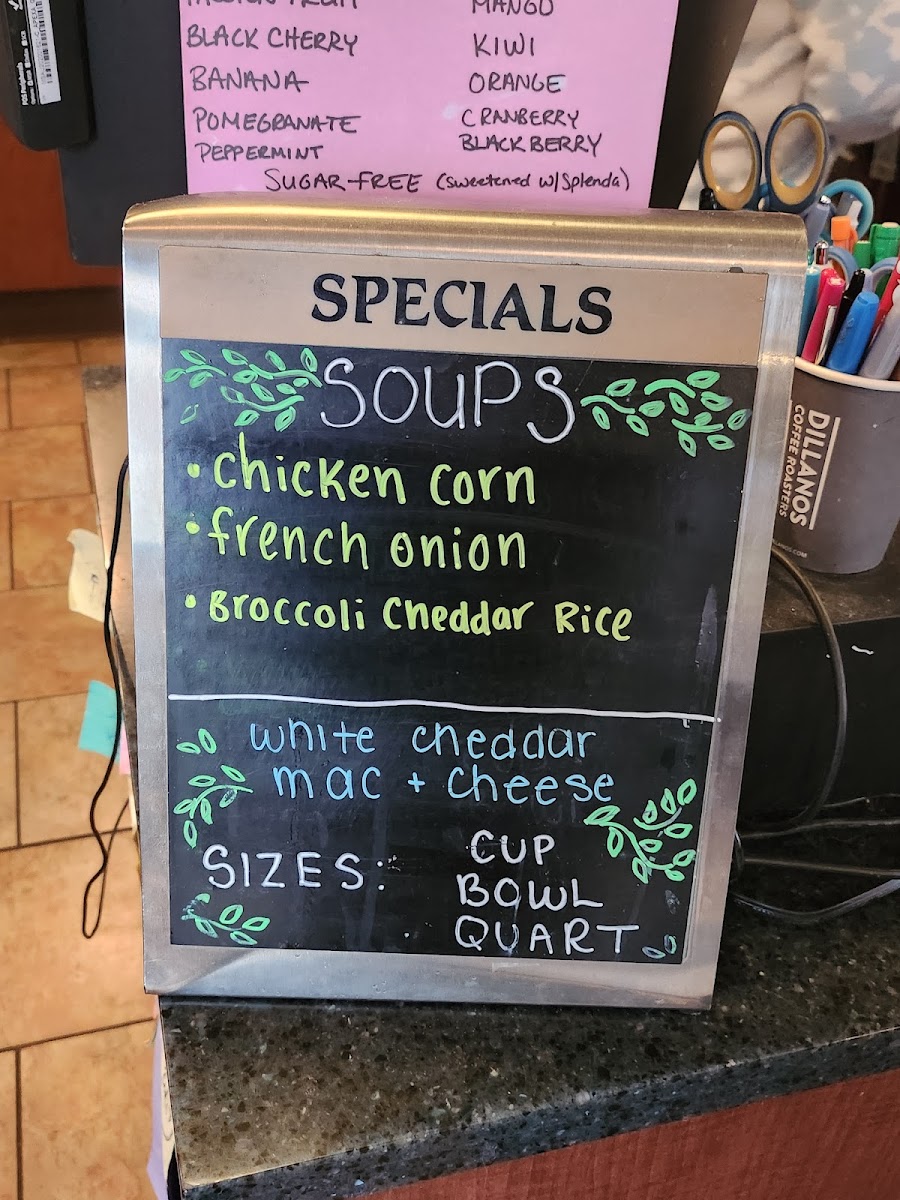 MANGO
BLACK CHERRY
KIWI
BANANA
ORANGE
POMEGRANATE
CRANBERRY
PEPPERMINT
BLACKBERRY
SUGAR-FREE (sweetened w/Splenda)
SPECIALS
SOUPS
• chicken corn
• french onion
• Broccoli Cheddar Rice
white cheddar
mac + cheese
SIZES:
CUP
BOWL
QUART
DILLANOS
COFFEE ROASTERS